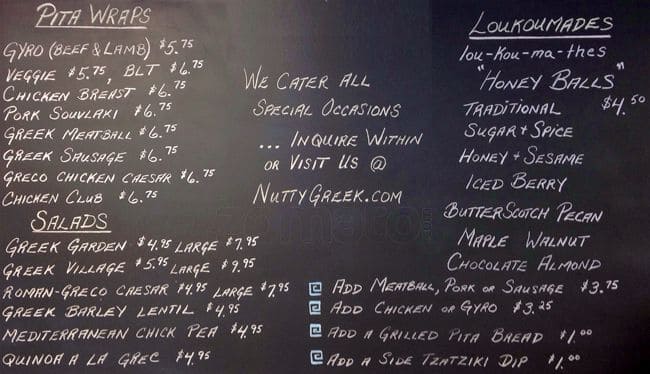 PITA WRAPS
GYRO (BEEF & LAMB) $5.75
VEGGIE $5.75, BLT $6.75
CHICKEN BREAST $6.75
PORK SOUVLAKI $6.75
GREEK MEATBALL $6.75
GREEK SAUSAGE $6.75
GRECO CHICKEN CAESAR $6.75
CHICKEN CLUB $6.75
SALADS
GREEK GARDEN $4.95 LARGE $7.95
GREEK VILLAGE $5.95 LARGE $9.95
ROMAN-GRECO CAESAR $4.95 LARGE $7.95
GREEK BARLEY LENTIL $4.95
MEDITERRANEAN CHICK PEA $4.95
QUINOA A LA GREC $4.95
WE CATER ALL
SPECIAL OCCASIONS
... INQUIRE WITHIN
OR VISIT US @
NUTTYGREEK.COM
zomato
LOUKOUMADES
lou-kou-ma-thes
"HONEY BALLS"
TRADITIONAL $4.50
SUGAR & SPICE
HONEY & SESAME
ICED BERRY
BUTTERSCOTCH PECAN
MAPLE WALNUT
CHOCOLATE ALMOND
ADD MEATBALL, PORK OR SAUSAGE $3.75
ADD CHICKEN OR GYRO $3.25
ADD A GRILLED PITA BREAD $1.00
ADD A SIDE TZATZIKI DIP $1.00